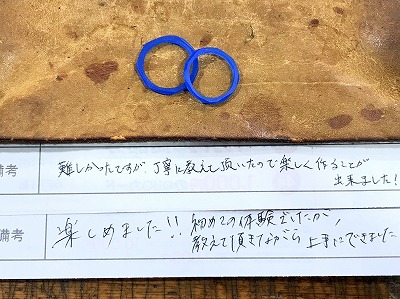 備考 難しかったですが、丁寧に教えて頂いたので楽しく作ることが
出来ました!
備考 楽しめました!! 初めての体験でしたが、
教えて頂きながら上手にできました